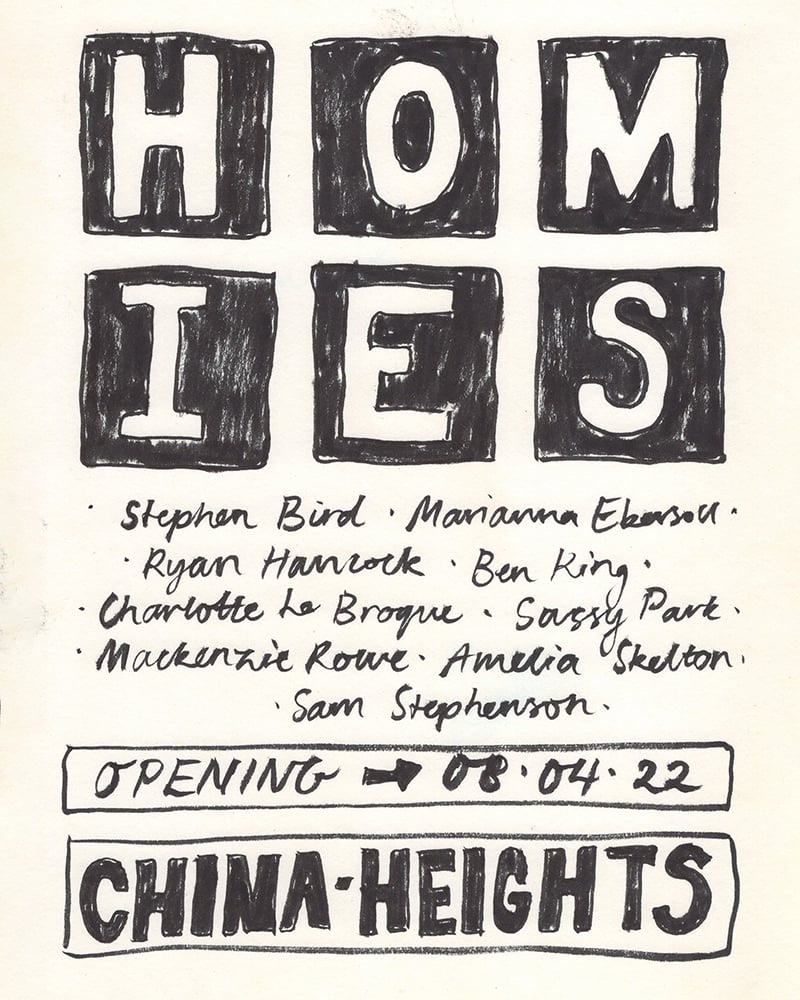 HOM
IES
· Stephen Bird · Marianna Ebersoll ·
· Ryan Hancock · Ben King ·
· Charlotte Le Broque · Sassy Park ·
· Mackenzie Rowe · Amelia Skelton ·
· Sam Stephenson ·
OPENING → 08·04·22
CHINA·HEIGHTS